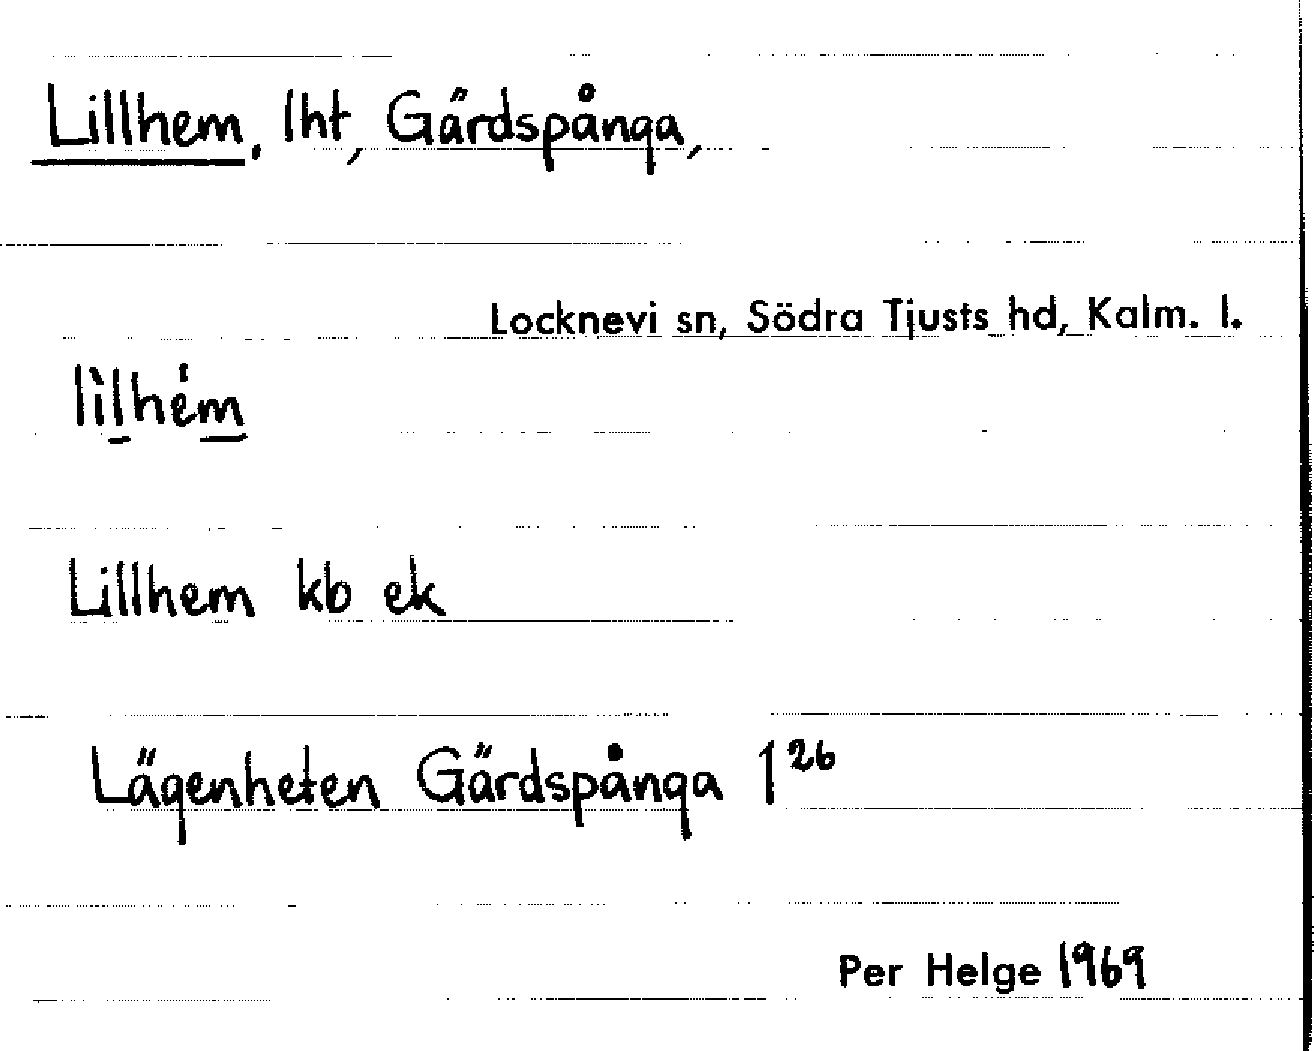 Lillhem, lht, Gärdspånga,
Locknevi sn, Södra Tjusts hd, Kalm. l.
lìl̲hém̲
Lillhem kb ek
Lägenheten Gärdspånga 1²⁶
Per Helge 1969